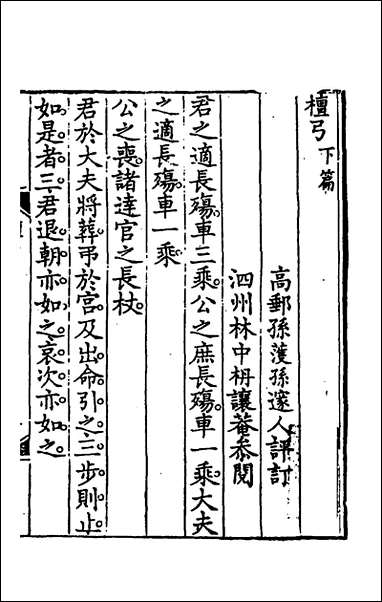 檀弓下篇
高郵孫濩孫邃人評訂
泗州林中枬讓菴叅閱
君之適長殤車三乘。公之庶長殤。車一乘。大夫
之適長殤車一乘
公之喪。諸達官之長杖。
君於大夫將葬。弔於宮。及出。命引之。三步則止。
如是者三。君退。朝亦如之。哀次亦如之。